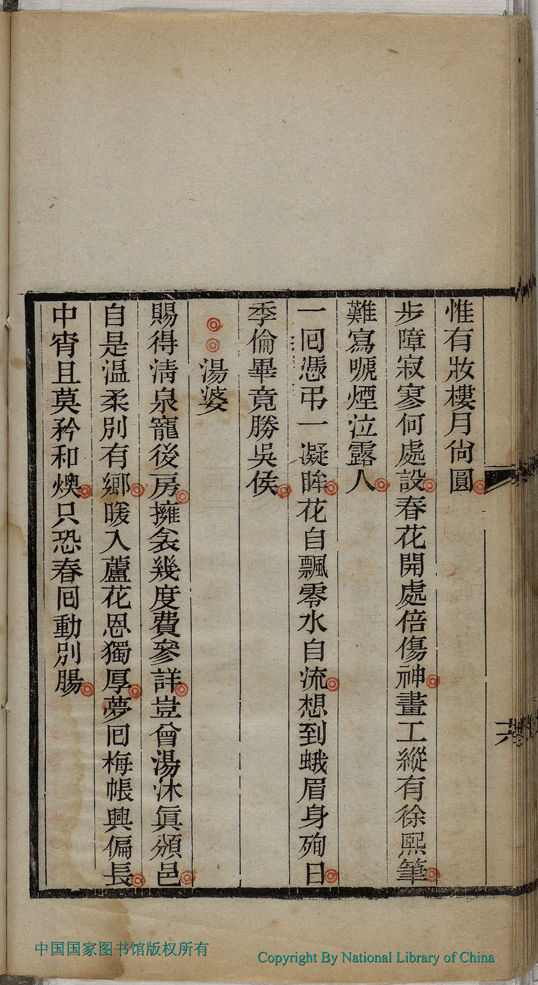 惟有妝樓月尙圓
步障寂寥何處設春花開處倍傷神畫工縱有徐熙筆
難寫嗁煙泣露人
一囘憑弔一凝眸花自飄零水自流想到蛾眉身殉日
季倫畢竟勝吳侯
湯婆
賜得淸泉寵後房擁衾幾度費參詳豈曾湯沐眞頒邑
自是温柔別有鄉暖入蘆花恩獨厚夢囘梅帳興偏長
中宵且莫矜和燠只恐春囘動別腸
中国国家图书馆版权所有
Copyright By National Library of China